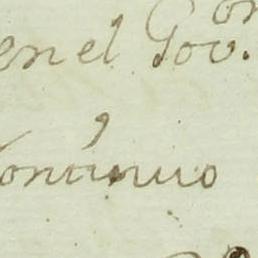 en el Gov.
Continuo